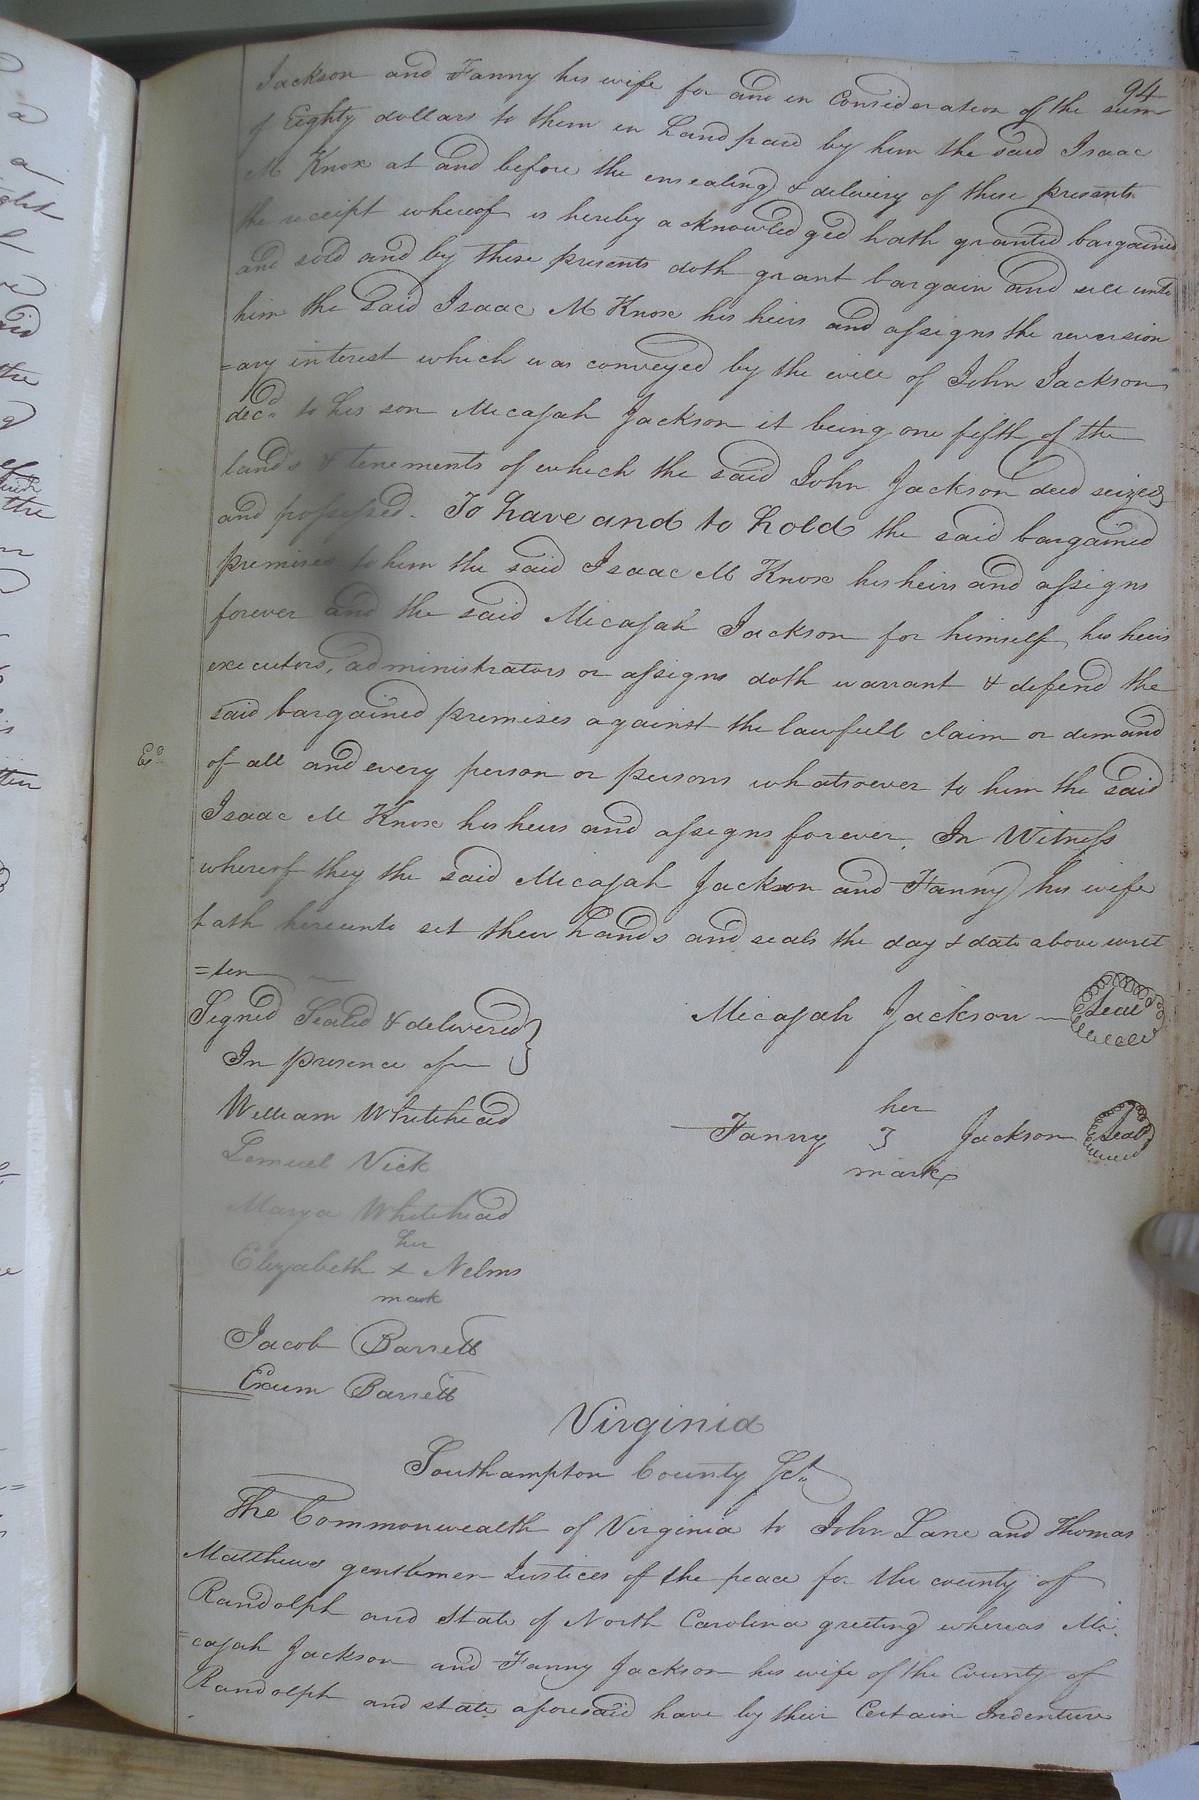 94
Jackson and Fanny his wife for and in Consideration of the sum
of Eighty dollars to them in hand paid by him the said Isaac
M Knox at and before the ensealing & delivery of these presents
the receipt whereof is hereby acknowledged hath granted bargained
and sold and by these presents doth grant bargain and sell unto
him the said Isaac M Knox his heirs and assigns the reversion
=ary interest which was conveyed by the will of John Jackson
decd. to his son Micajah Jackson it being one fifth of the
lands & tenements of which the said John Jackson died seized
and possessed. To have and to hold the said bargained
premises to him the said Isaac M Knox his heirs and assigns
forever and the said Micajah Jackson for himself, his heirs
executors, administrators or assigns doth warrant & defend the
said bargained premises against the lawfull claim or demand
of all and every person or persons whatsoever to him the said
Isaac M Knox his heirs and assigns forever. In Witness
whereof they the said Micajah Jackson and Fanny his wife
hath hereunto set their hands and seals the day & date above writ
=ten
Signed Sealed & delivered }
In presence of
Micajah Jackson Seal
William Whitehead
her
Fanny 3 Jackson Seal
mark
Lemuel Vick
Marya Whitehead
her
Elizabeth x Nelms
mark
Jacob Barrett
Exum Barrett
Virginia
Southampton County Sct.
The Commonwealth of Virginia to John Lane and Thomas
Matthews gentlemen Justices of the peace for the county of
Randolph and State of North Carolina greeting whereas Mi
=cajah Jackson and Fanny Jackson his wife of the County of
Randolph and state aforesaid have by their Certain Indenture